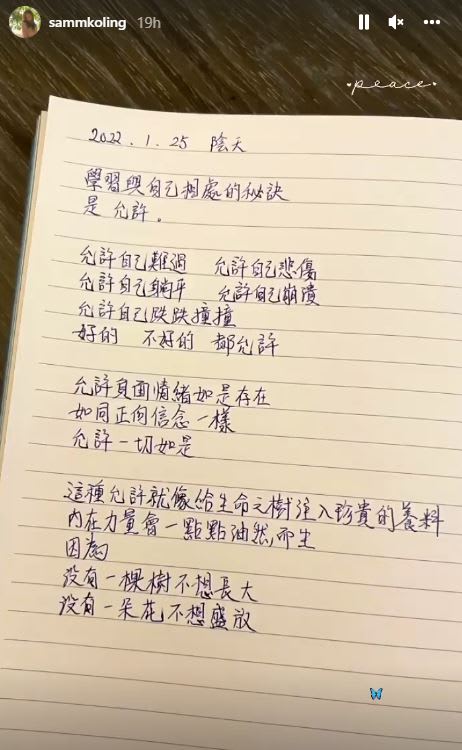 sammkoling 19h
peace
2022.1.25 陰天
學習與自己相處的秘訣
是 允許。
允許自己難過 允許自己悲傷
允許自己躺平 允許自己崩潰
允許自己跌跌撞撞
好的 不好的 都允許
允許負面情緒如是存在
如同正向信念一樣
允許一切如是
這種允許就像給生命之樹注入珍貴的養料
內在力量會一點點油然而生
因為
沒有一棵樹不想長大
沒有一朵花不想盛放